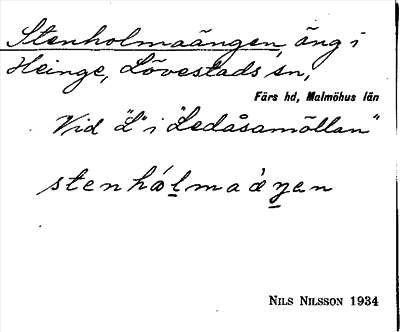 Stenholmaängen, äng i
Heinge, Lövestads sn,
Färs hd, Malmöhus län
Vid "L" i "Ledåsamöllan"
stenhålmaäŋen
NILS NILSSON 1934